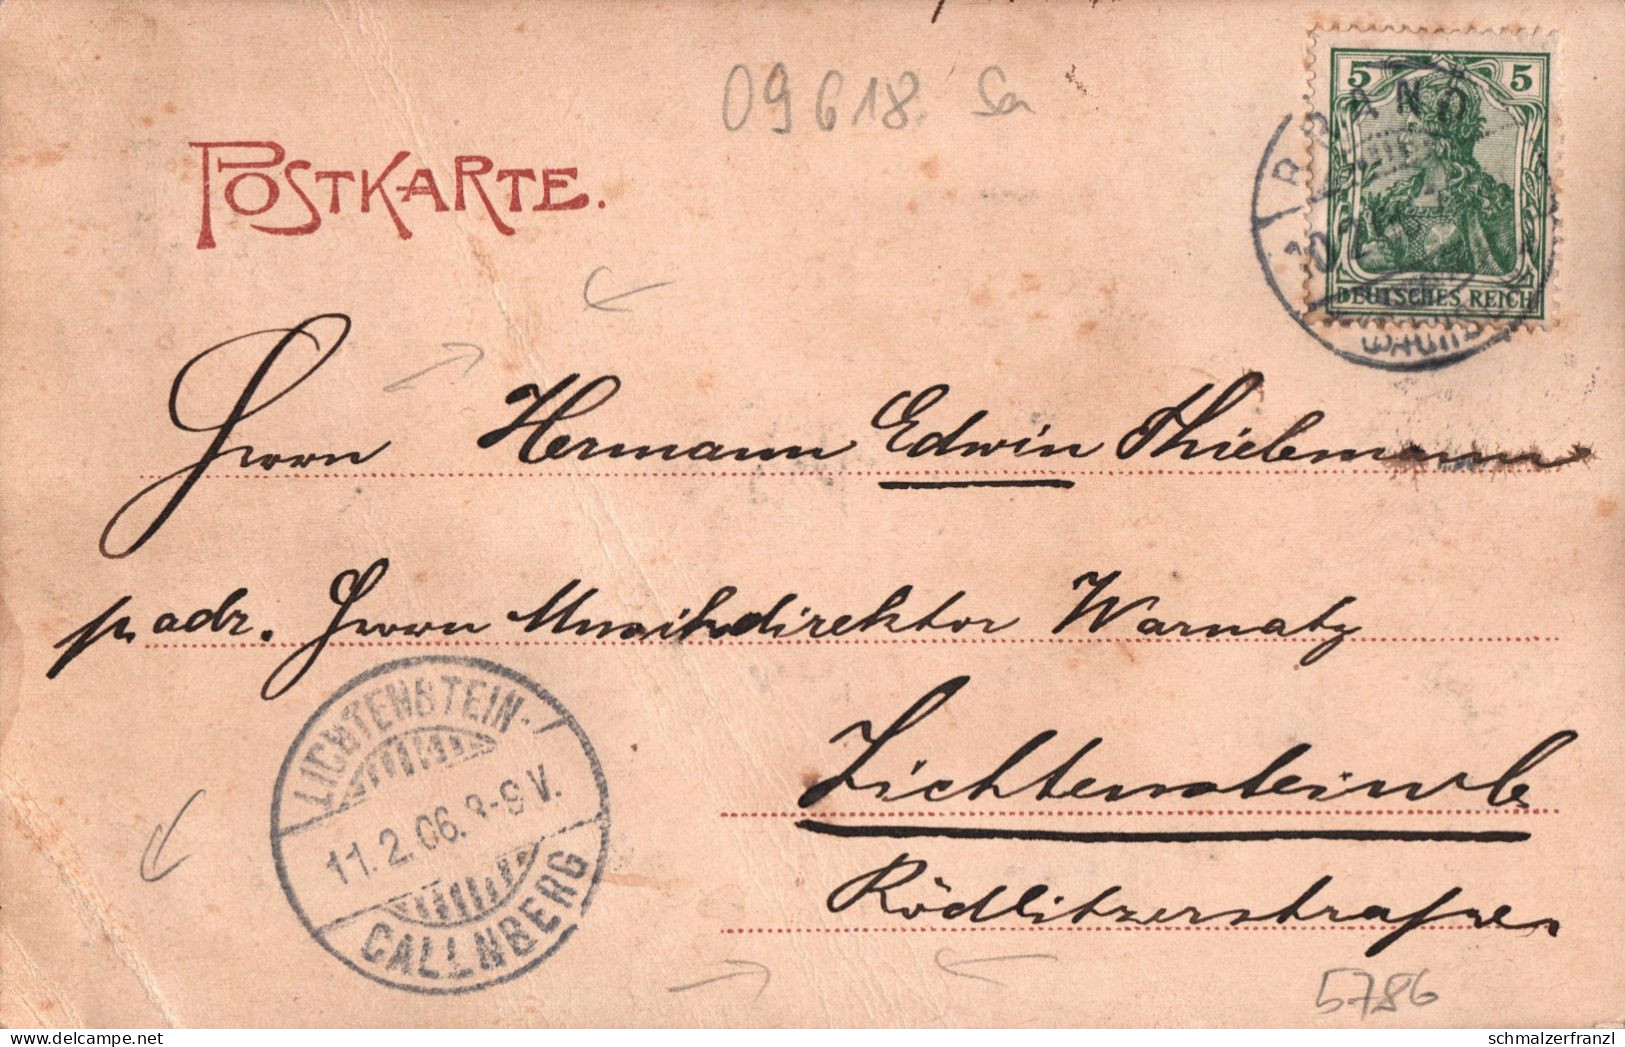 09618. Sa
5 5
DEUTSCHES REICH
BRAND
10.2.
POSTKARTE.
Herrn Hermann Edwin Thielemann
p. adr. Herrn Musikdirektor Warnatz
Lichtenstein
Rödlitzerstrasse.
LICHTENSTEIN-
11.2.06. 8-9 V.
CALLNBERG
5786
schmalzerfranzl